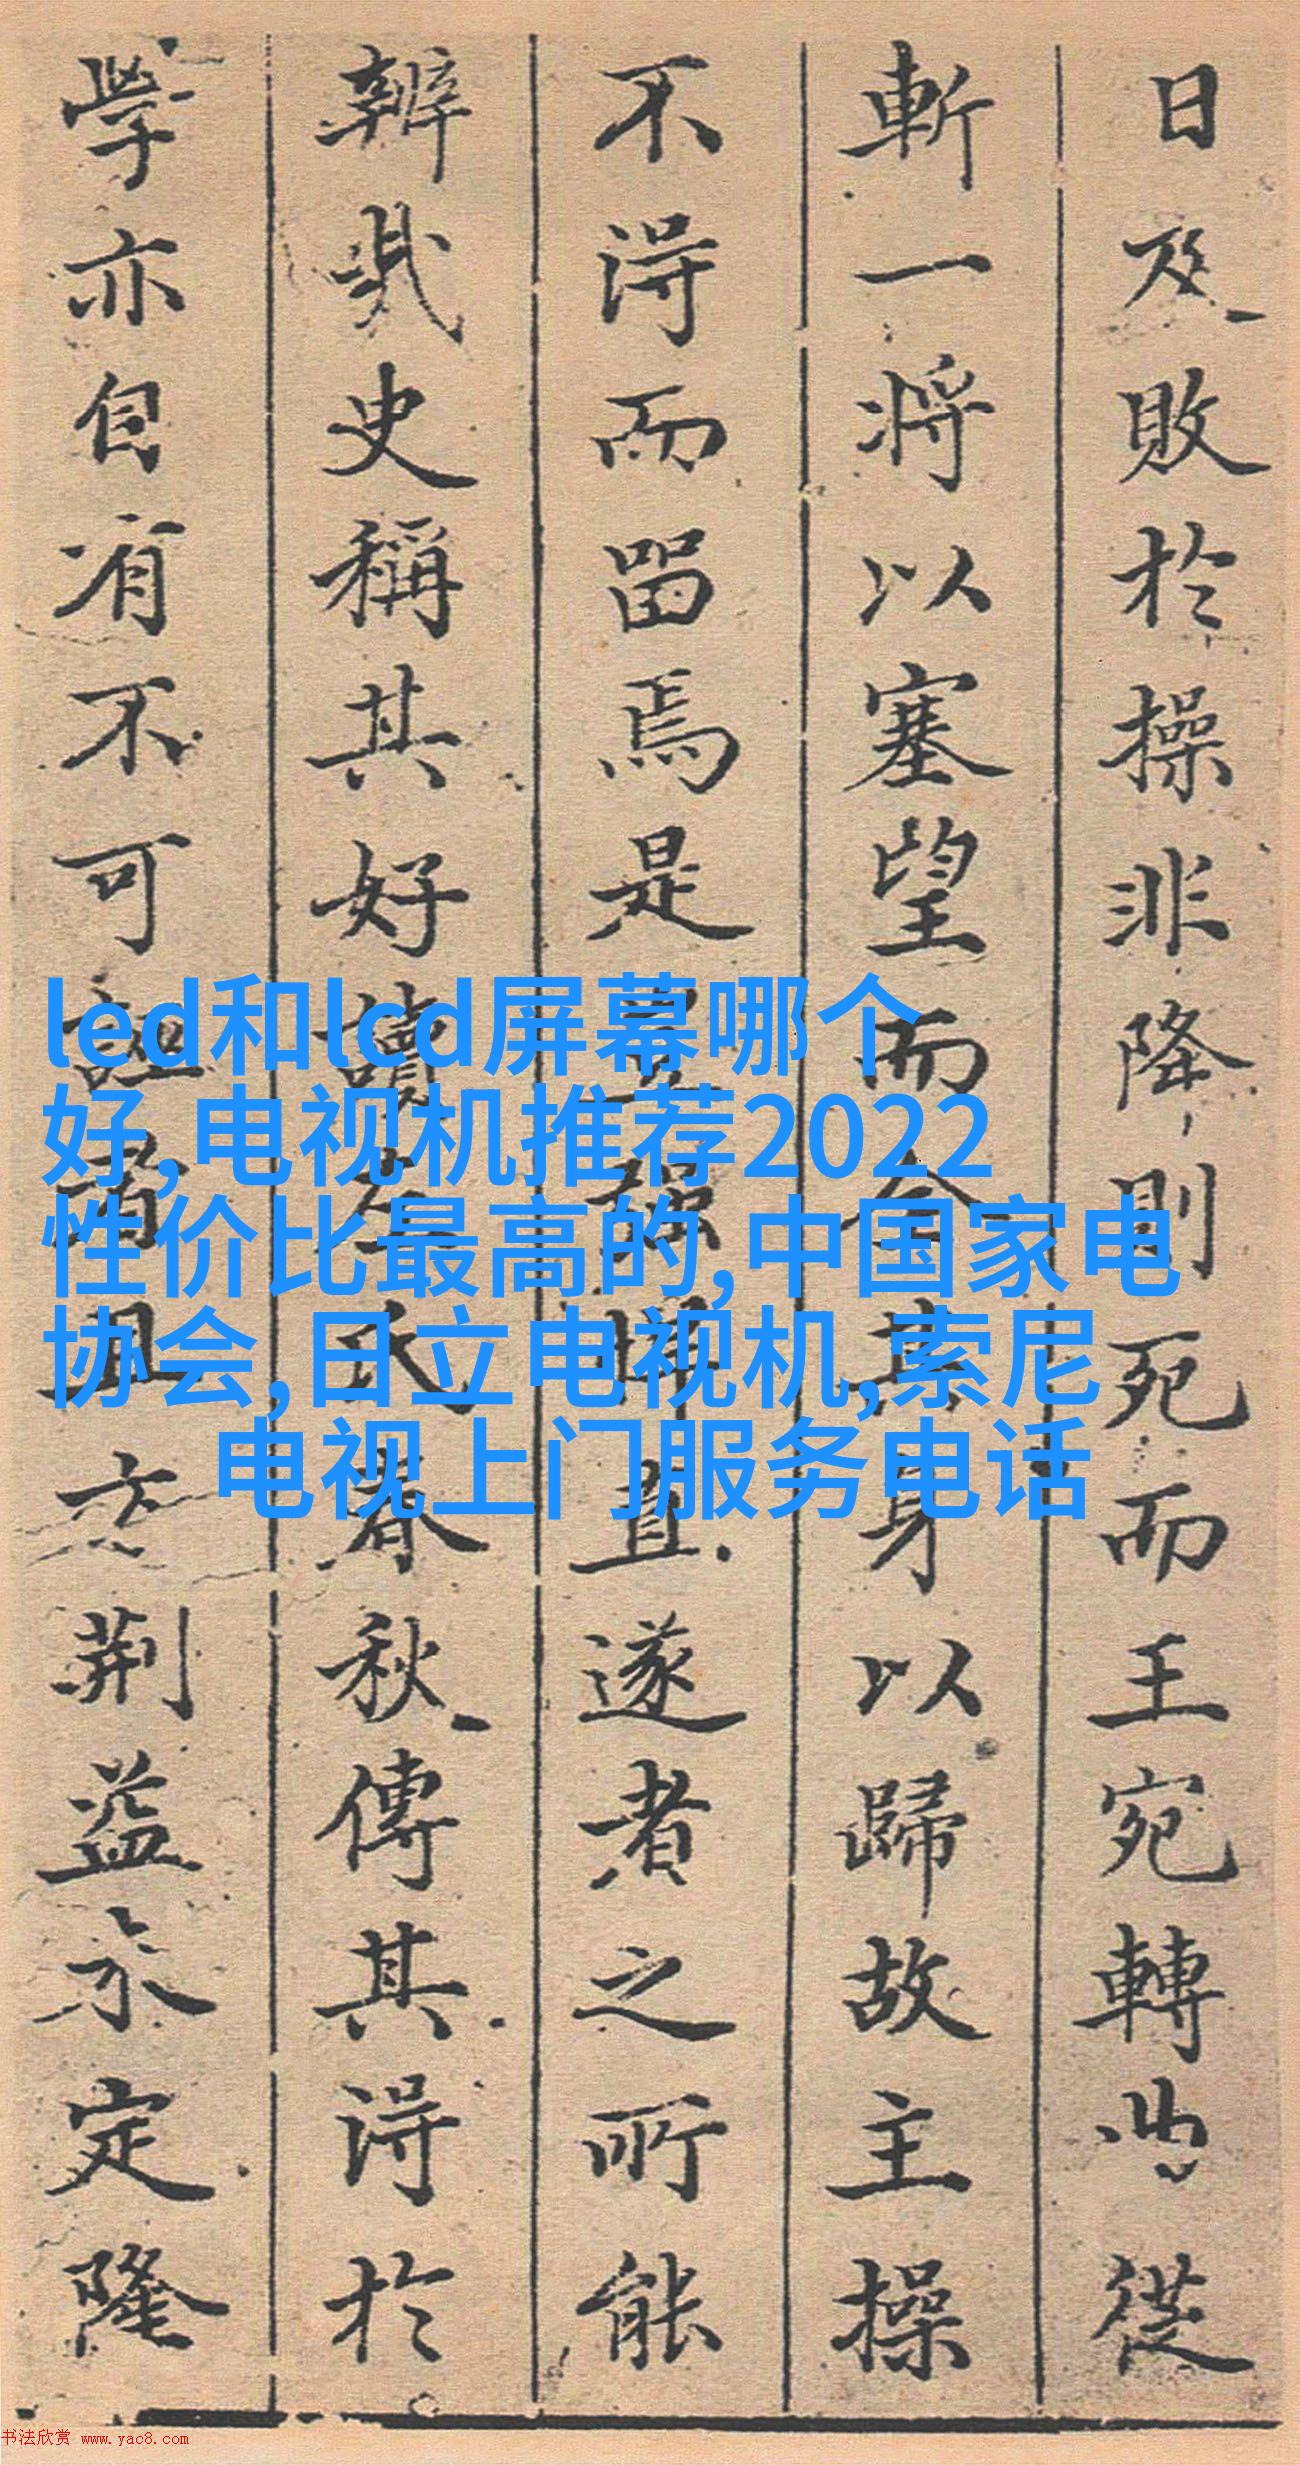 日及敗於操非降則死而王宛轉從
斬一将以塞望而全其身以歸故主操
不淂而留焉是強悍直遂者之所能
辨哉史稱其好讀左氏春秋傳其淂於
學亦自有不可誣者且荊益未定隆
led和lcd屏幕哪个
好,电视机推荐2022
性价比最高的,中国家电
协会,日立电视机,索尼
电视上门服务电话
书法欣赏 www.yac8.com